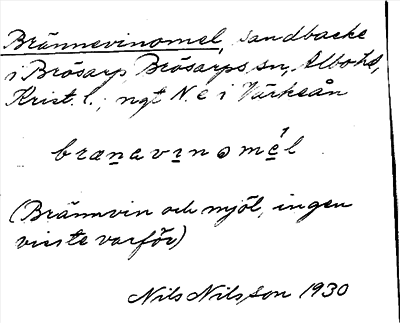 Brännevinomel, sandbacke
i Brösarp Brösarps sn, Albo hd,
Krist. l.; ngt N. e i Värkeån
brænavinomel
(Brännvin och mjöl, ingen
visste varför)
Nils Nilsson 1930